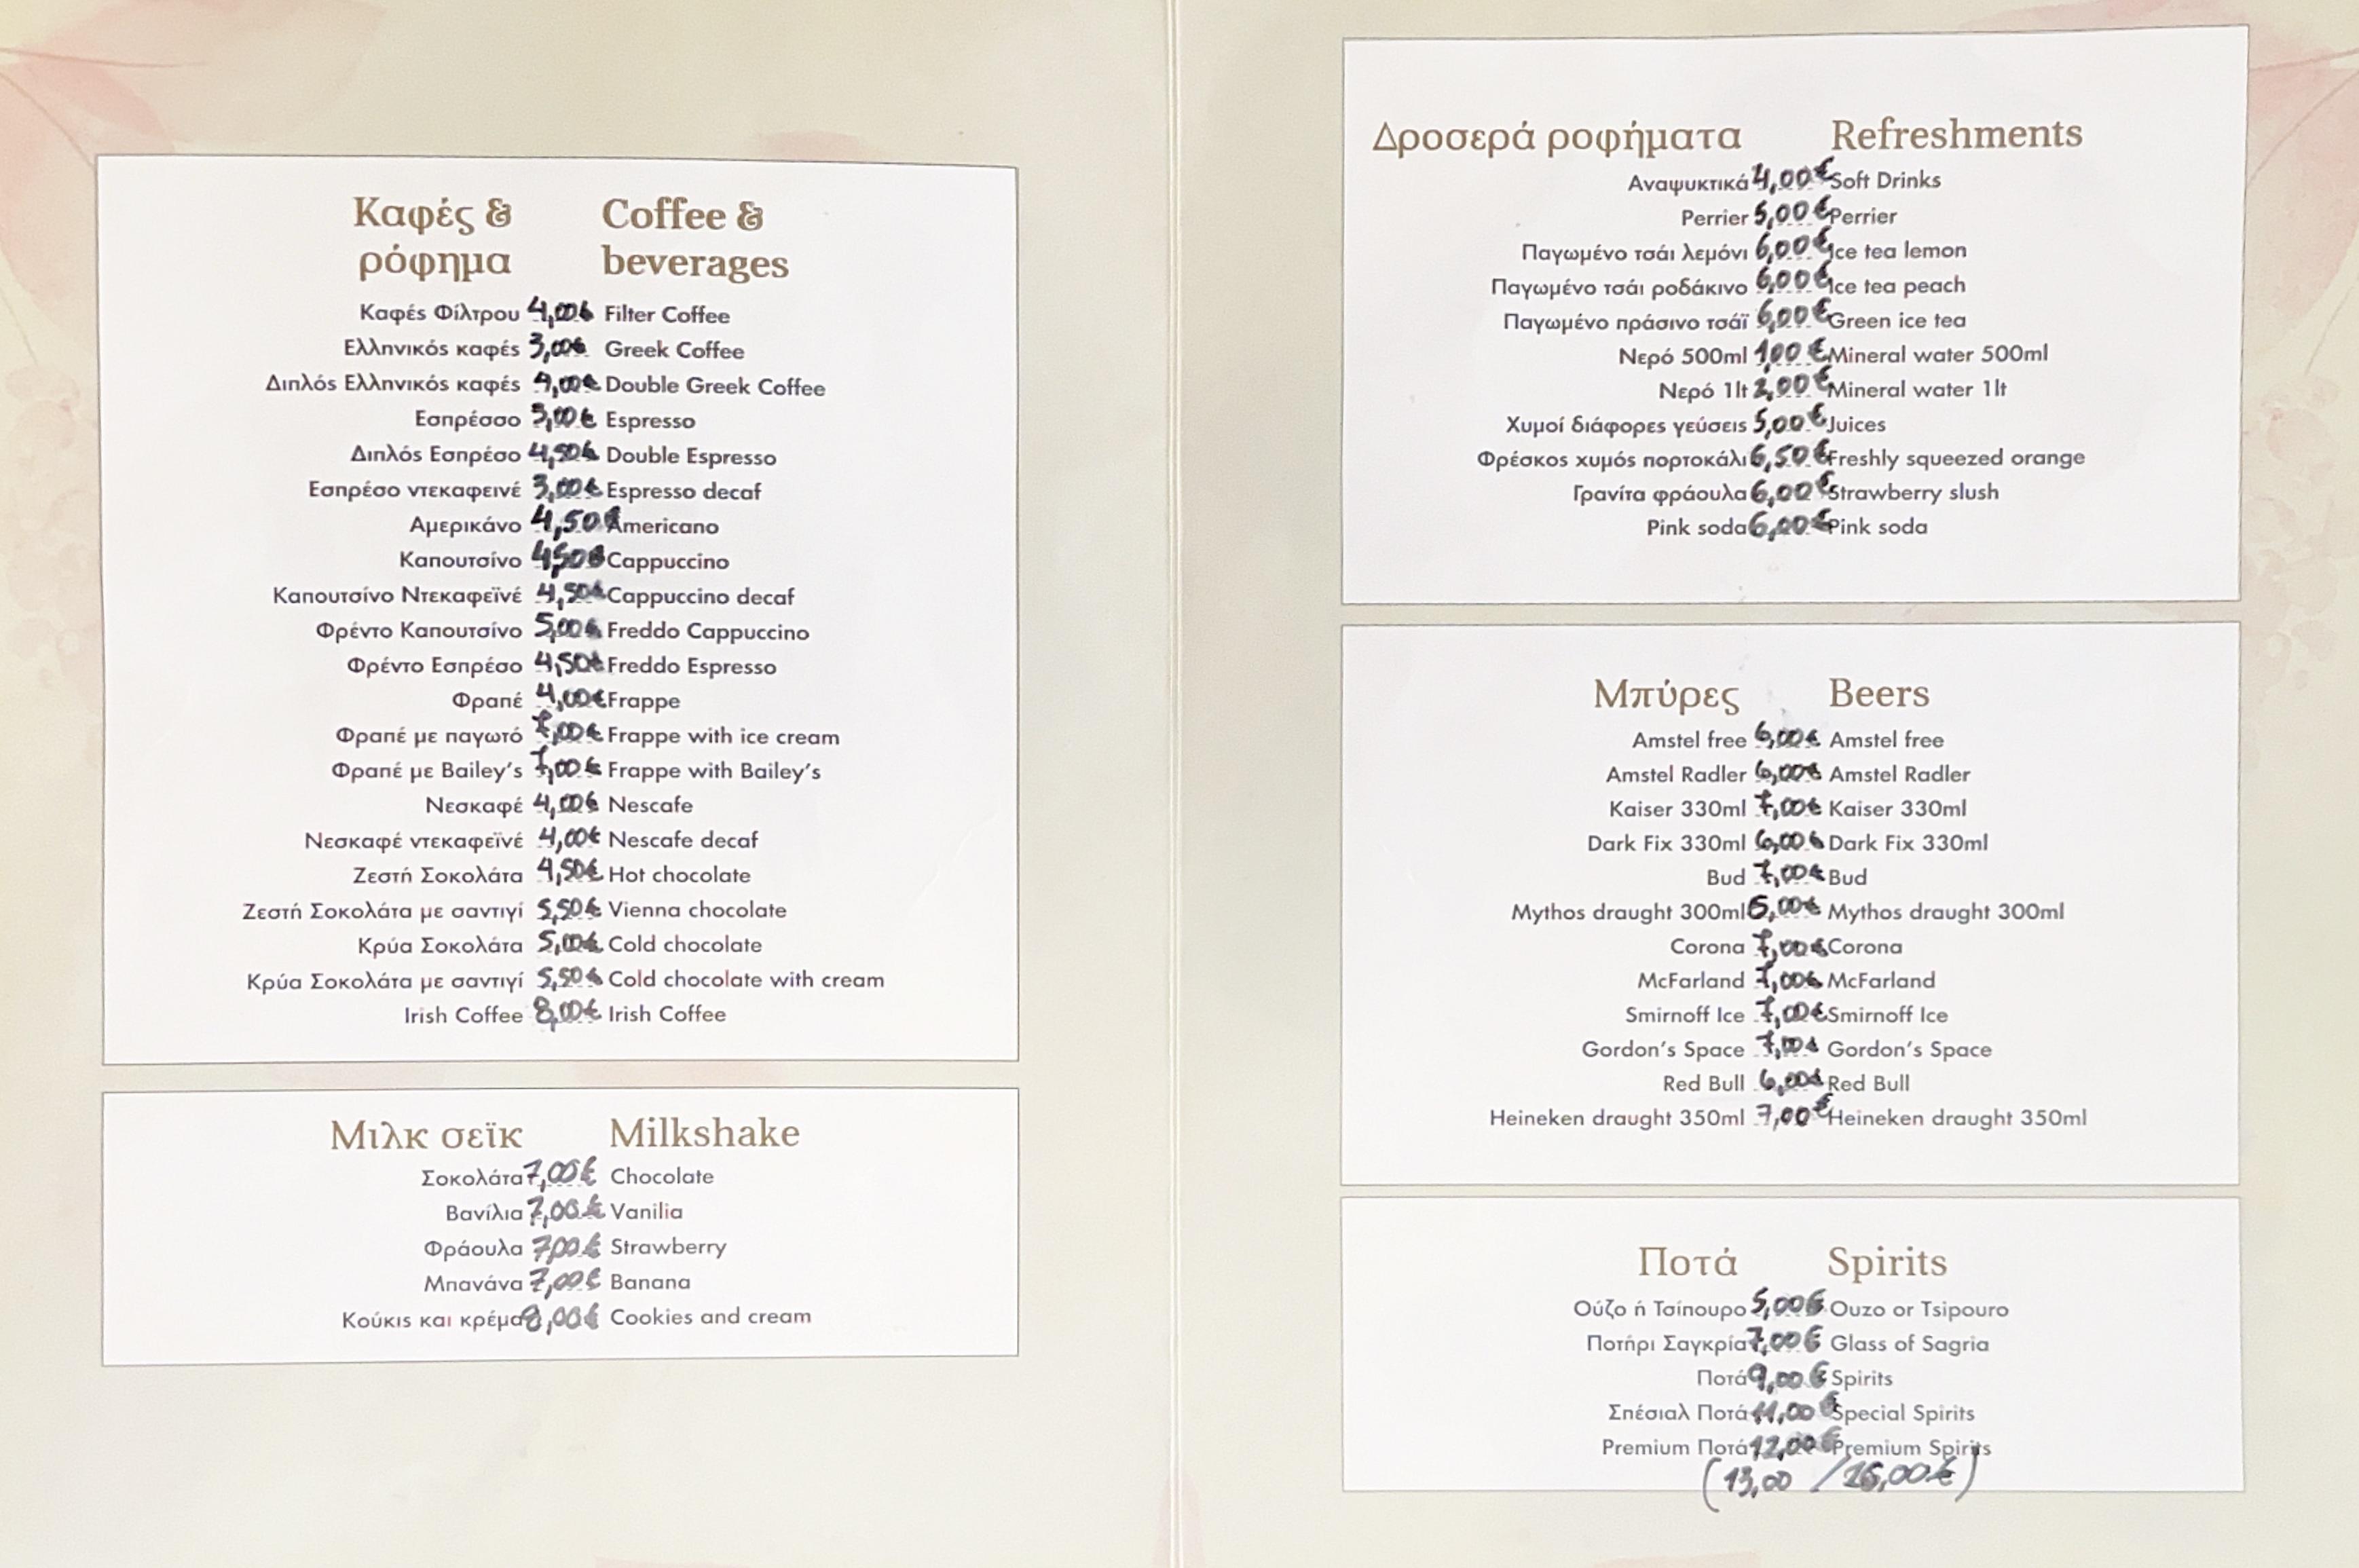 Καφές & Coffee &
ρόφημα beverages
Καφές Φίλτρου 4,00€ Filter Coffee
Ελληνικός καφές 3,00€ Greek Coffee
Διπλός Ελληνικός καφές 4,00€ Double Greek Coffee
Εσπρέσσο 3,00€ Espresso
Διπλός Εσπρέσο 4,50€ Double Espresso
Εσπρέσο ντεκαφεινέ 3,00€ Espresso decaf
Αμερικάνο 4,50€ Americano
Καπουτσίνο 4,50€ Cappuccino
Καπουτσίνο Ντεκαφεϊνέ 4,50€ Cappuccino decaf
Φρέντο Καπουτσίνο 5,00€ Freddo Cappuccino
Φρέντο Εσπρέσο 4,50€ Freddo Espresso
Φραπέ 4,00€ Frappe
Φραπέ με παγωτό 7,00€ Frappe with ice cream
Φραπέ με Bailey's 7,00€ Frappe with Bailey's
Νεσκαφέ 4,00€ Nescafe
Νεσκαφέ ντεκαφεϊνέ 4,00€ Nescafe decaf
Ζεστή Σοκολάτα 4,50€ Hot chocolate
Ζεστή Σοκολάτα με σαντιγί 5,50€ Vienna chocolate
Κρύα Σοκολάτα 5,00€ Cold chocolate
Κρύα Σοκολάτα με σαντιγί 5,50€ Cold chocolate with cream
Irish Coffee 8,00€ Irish Coffee
Μιλκ σεϊκ Milkshake
Σοκολάτα 7,00€ Chocolate
Βανίλια 7,00€ Vanilia
Φράουλα 7,00€ Strawberry
Μπανάνα 7,00€ Banana
Κούκις και κρέμα 8,00€ Cookies and cream
Δροσερά ροφήματα Refreshments
Αναψυκτικά 4,00€ Soft Drinks
Perrier 5,00€ Perrier
Παγωμένο τσάι λεμόνι 6,00€ Ice tea lemon
Παγωμένο τσάι ροδάκινο 6,00€ Ice tea peach
Παγωμένο πράσινο τσάϊ 6,00€ Green ice tea
Νερό 500ml 1,00€ Mineral water 500ml
Νερό 1lt 2,00€ Mineral water 1lt
Χυμοί διάφορες γεύσεις 5,00€ Juices
Φρέσκος χυμός πορτοκάλι 6,50€ Freshly squeezed orange
Γρανίτα φράουλα 6,00€ Strawberry slush
Pink soda 6,00€ Pink soda
Μπύρες Beers
Amstel free 6,00€ Amstel free
Amstel Radler 6,00€ Amstel Radler
Kaiser 330ml 7,00€ Kaiser 330ml
Dark Fix 330ml 6,00€ Dark Fix 330ml
Bud 7,00€ Bud
Mythos draught 300ml 5,00€ Mythos draught 300ml
Corona 7,00€ Corona
McFarland 7,00€ McFarland
Smirnoff Ice 7,00€ Smirnoff Ice
Gordon's Space 7,00€ Gordon's Space
Red Bull 6,00€ Red Bull
Heineken draught 350ml 7,00€ Heineken draught 350ml
Ποτά Spirits
Ούζο ή Τσίπουρο 5,00€ Ouzo or Tsipouro
Ποτήρι Σαγκρία 7,00€ Glass of Sagria
Ποτά 9,00€ Spirits
Σπέσιαλ Ποτά 11,00€ Special Spirits
Premium Ποτά 12,00€ Premium Spirits
(13,00 / 16,00€)